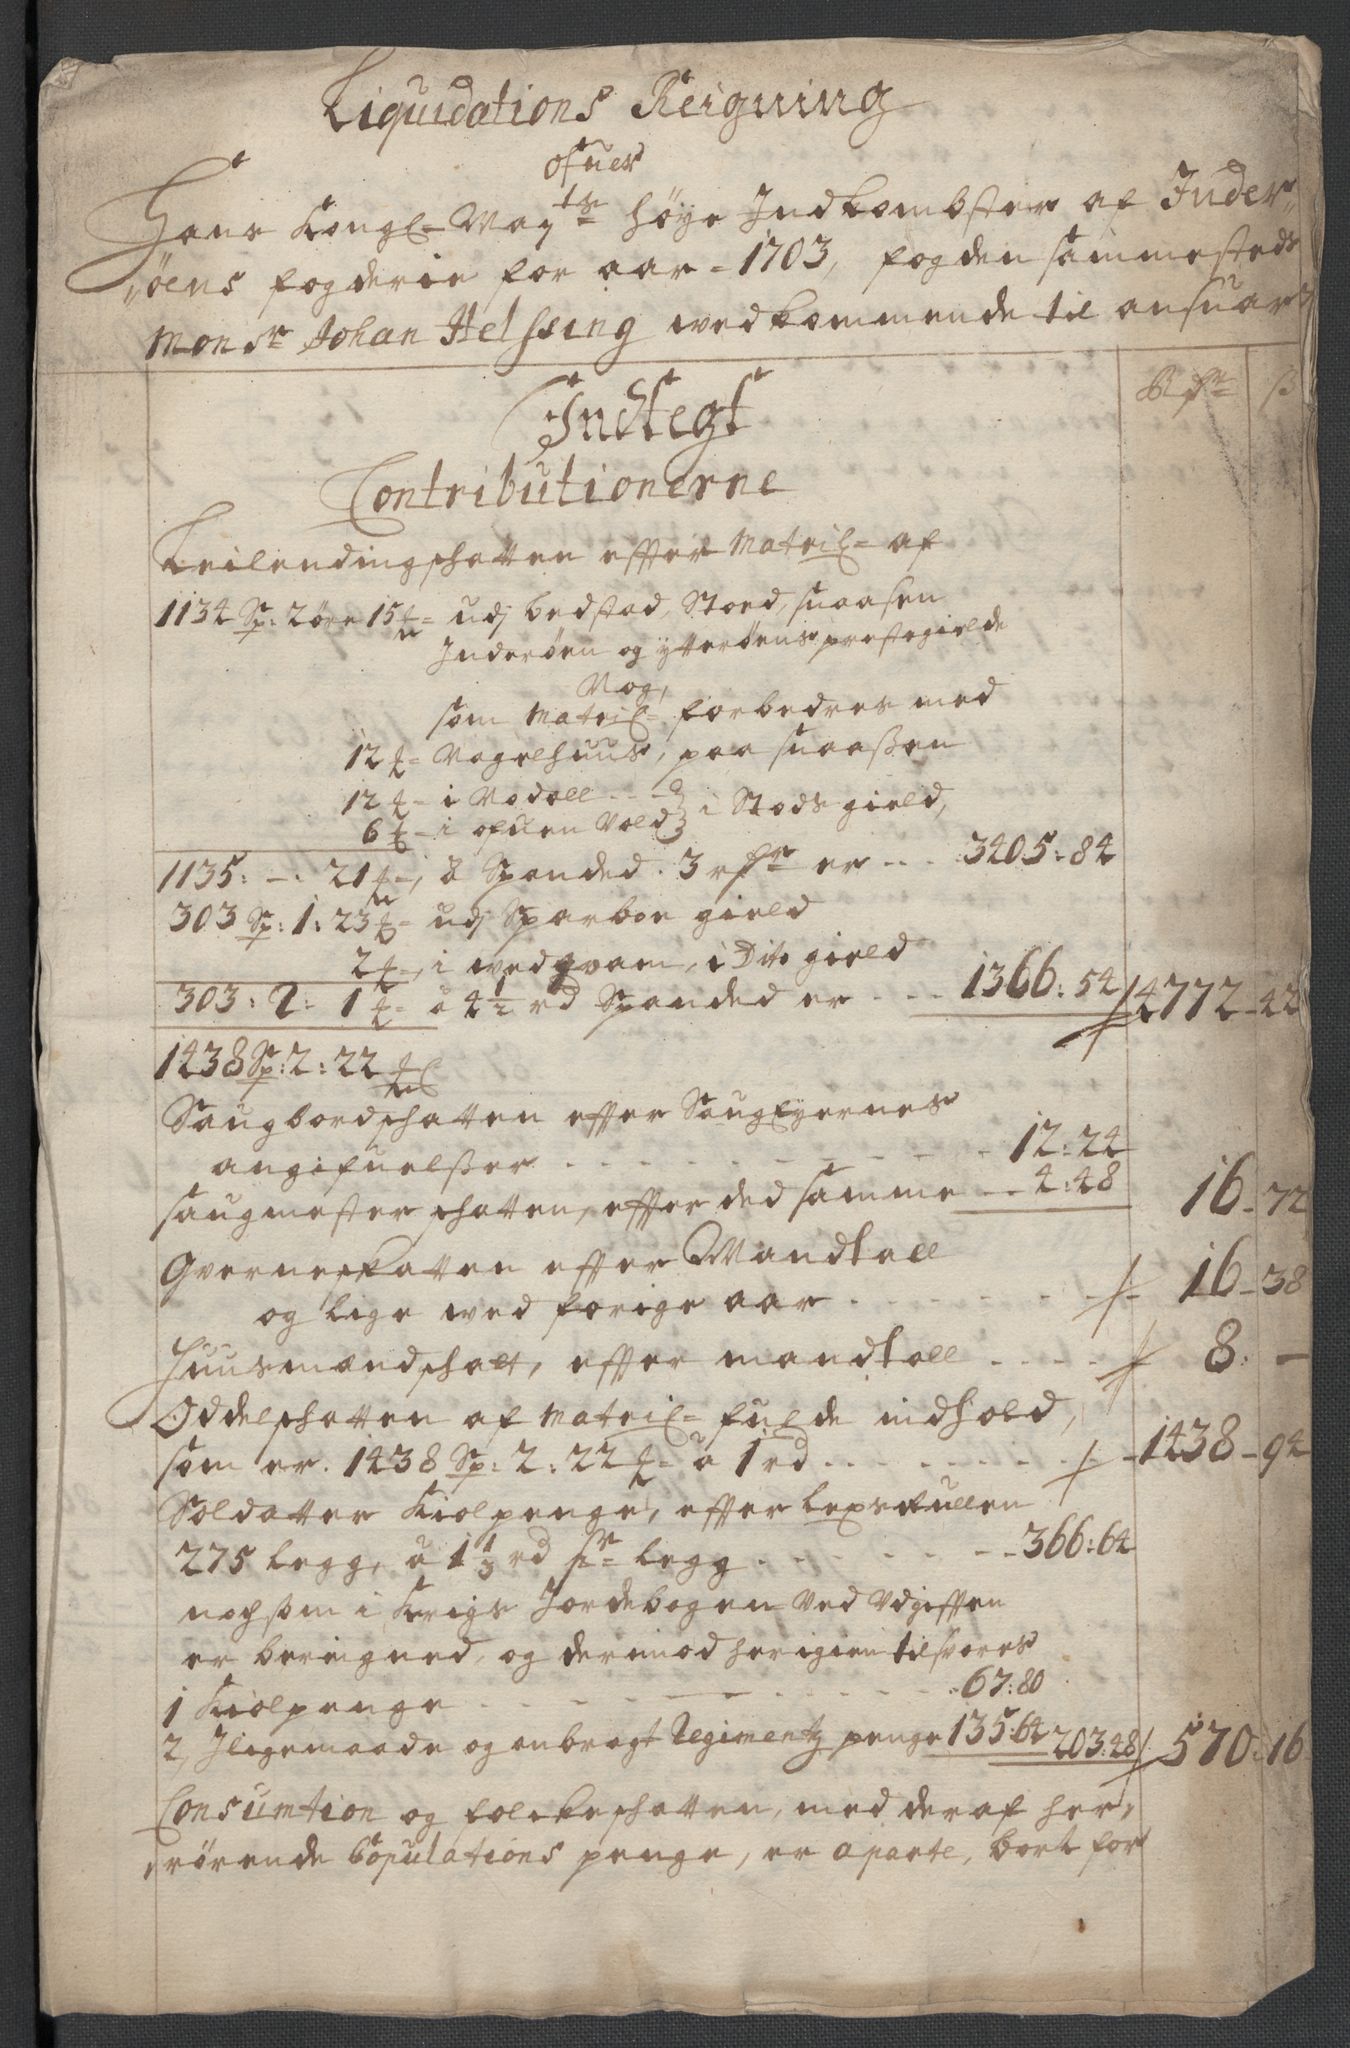 Liquidations Reigning
ofuer
Hans Kongl= May.ts høye Indkombster af Inder,,
,,øens fogderie for aar = 1703, fogden sammesteds
Monsr Johan Helsing vedkommende til ansuar
Indtegt
Contributionerne
Rdr ß
Leilendingschatten effter Matril= af
1134 Sp: 2 øre 15 udj bedstad, Stoed, snaasen
Inderøen og ytterøens prestegielde
Nog,
som Matril= forbedres med
12 Vagelhuus, paa snaaßen
12 i Vodall
6 i ofuen Vold i Stods gield,
1135: -: 21, â Spanded. 3 rdr er - - - 3405: 84
303 Sp: 1: 23 udj Sparboe gield
2, i wedgvam, i Dito gield
303: 2: 1 â 4 1/2 rd Spanded er - - - 1366: 54 4772 - 42
1438 Sp: 2: 22
Saugbordschatten effter Saugeyernes
angifuelßer - - - - - - - - 12: 24
saugmester schatten, effter ded samme - - 4: 48 16 - 72
Qverneskatten effter Mandtall
og lige ved forige aar - - - - - - 16 - 38
Huusmandschatt, effter mandtall - - - - 8: -
Oddelschatten af Matril= fulde indhold,
som er. 1438 Sp: 2: 22 â 1 rd - - - - - - 1438 - 94
Soldatter Kiolpenge, effter legsrullen
275 legg, â 1 1/3 rd pr= legg - - - - - - 366: 64
nochsom i Krigs Jordebogen Ved Vdgifften
er beregned, og derimod her igien tilføres
1 Kiolpenge - - - - - - - 67: 80
2, Iligemaade og anbragt Regimentz penge 135: 64 203: 48 570: 16
Consumtion og folckeschatten, med deraf her,,
,,rørende Copulations penge, er aparte, bort for